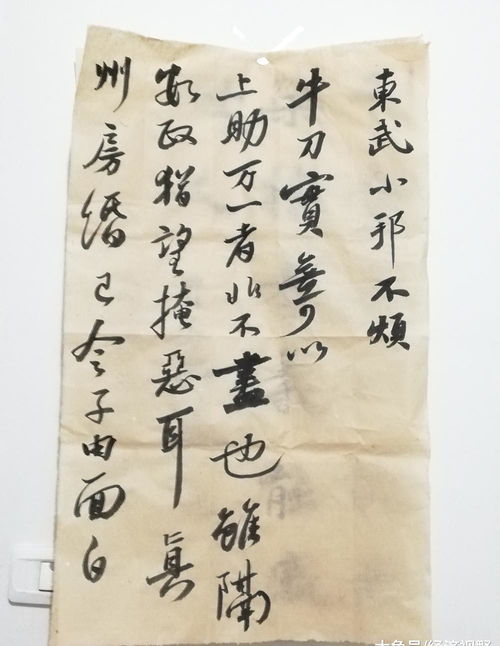 東武小邦不煩
牛刀實無可以
上助万一者非不盡也雖隔
數政猶望掩惡耳真
州房緡已令子由面白
大鱼号/经济视野